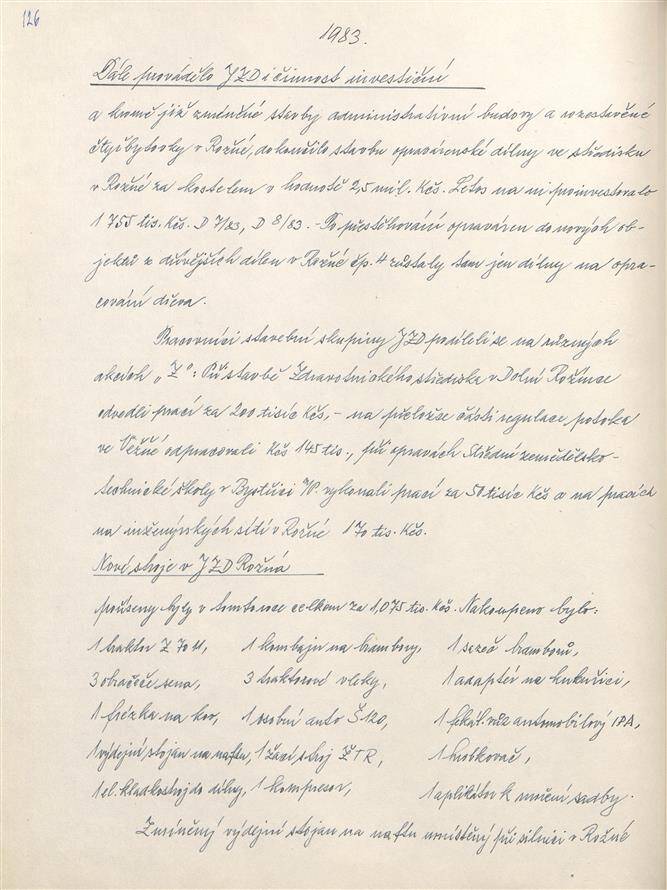 126
1983.
Dále provádělo JZD i činnost investiční
a kromě již zmíněné stavby administrativní budovy a rozestavěné
čtyřbytovky v Rožné, dokončilo stavbu opravárenské dílny ve středisku
v Rožné za kostelem v hodnotě 2,5 mil. Kčs. Letos na ni proinvestovalo
1 755 tis. Kčs. D 7/83, D 8/83. - Po přestěhování opraváren do nových ob-
jektů z dřívějších dílen v Rožné čp. 4 zůstaly tam jen dílny na opra-
cování dřeva.
Pracovníci stavební skupiny JZD podíleli se na různých
akcích „Z": Při stavbě Zdravotnického střediska v Dolní Rožínce
odvedli prací za 200 tisíc Kčs, - na přeložce části regulace potoka
ve Věžné odpracovali Kčs 145 tis., při opravách Střední zemědělsko-
technické školy v Bystřici n/P. vykonali prací za 50 tisíc Kčs a na pracích
na inženýrských sítí v Rožné 170 tis. Kčs.
Nové stroje v JZD Rožná
pořízeny byly v tomto roce celkem za 1,075 tis. Kčs. Nakoupeno bylo:
1 traktor Z 7011, 1 kombajn na brambory, 1 sazeč bramborů,
3 obraceče sena, 3 traktorové vleky, 1 adaptér na kukuřici,
1 frézka na kov, 1 osobní auto Š 120, 1 fekál. vůz automobilový IFA,
1 výdejní stojan na naftu, 1 žací stroj ŽTR, 1 hrobkovač,
1 el. kladkostroj do dílny, 1 kompresor, 1 aplikátor k moření sadby.
Zmíněný výdejní stojan na naftu umístěný při silnici v Rožné